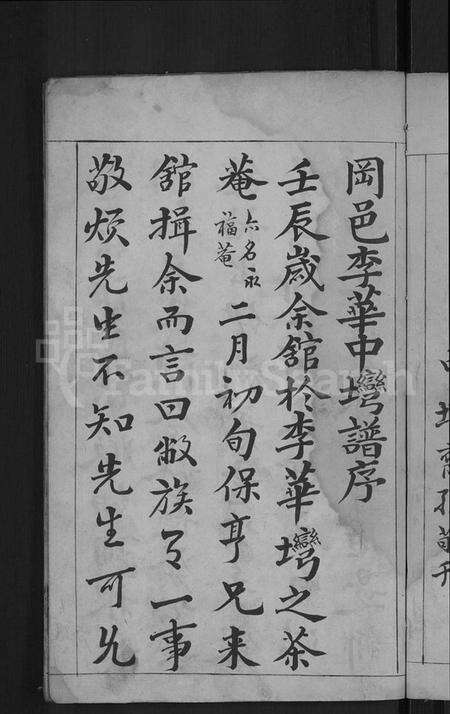 岡邑李華中塆譜序
壬辰歲余舘於李華塆之茶
菴 亦名永福菴 二月初旬保亨兄来
舘揖余而言曰敝族有一事
敬煩先生不知先生可允
FamilySearch